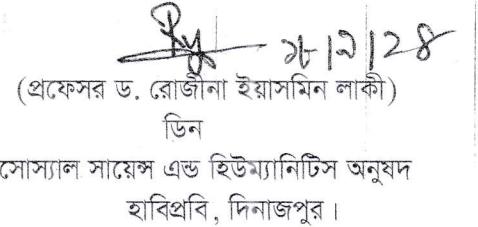 (প্রফেসর ড. রোজীনা ইয়াসমিন লাকী)
ডিন
সোস্যাল সায়েন্স এন্ড হিউম্যানিটিস অনুষদ
হাবিপ্রবি, দিনাজপুর।